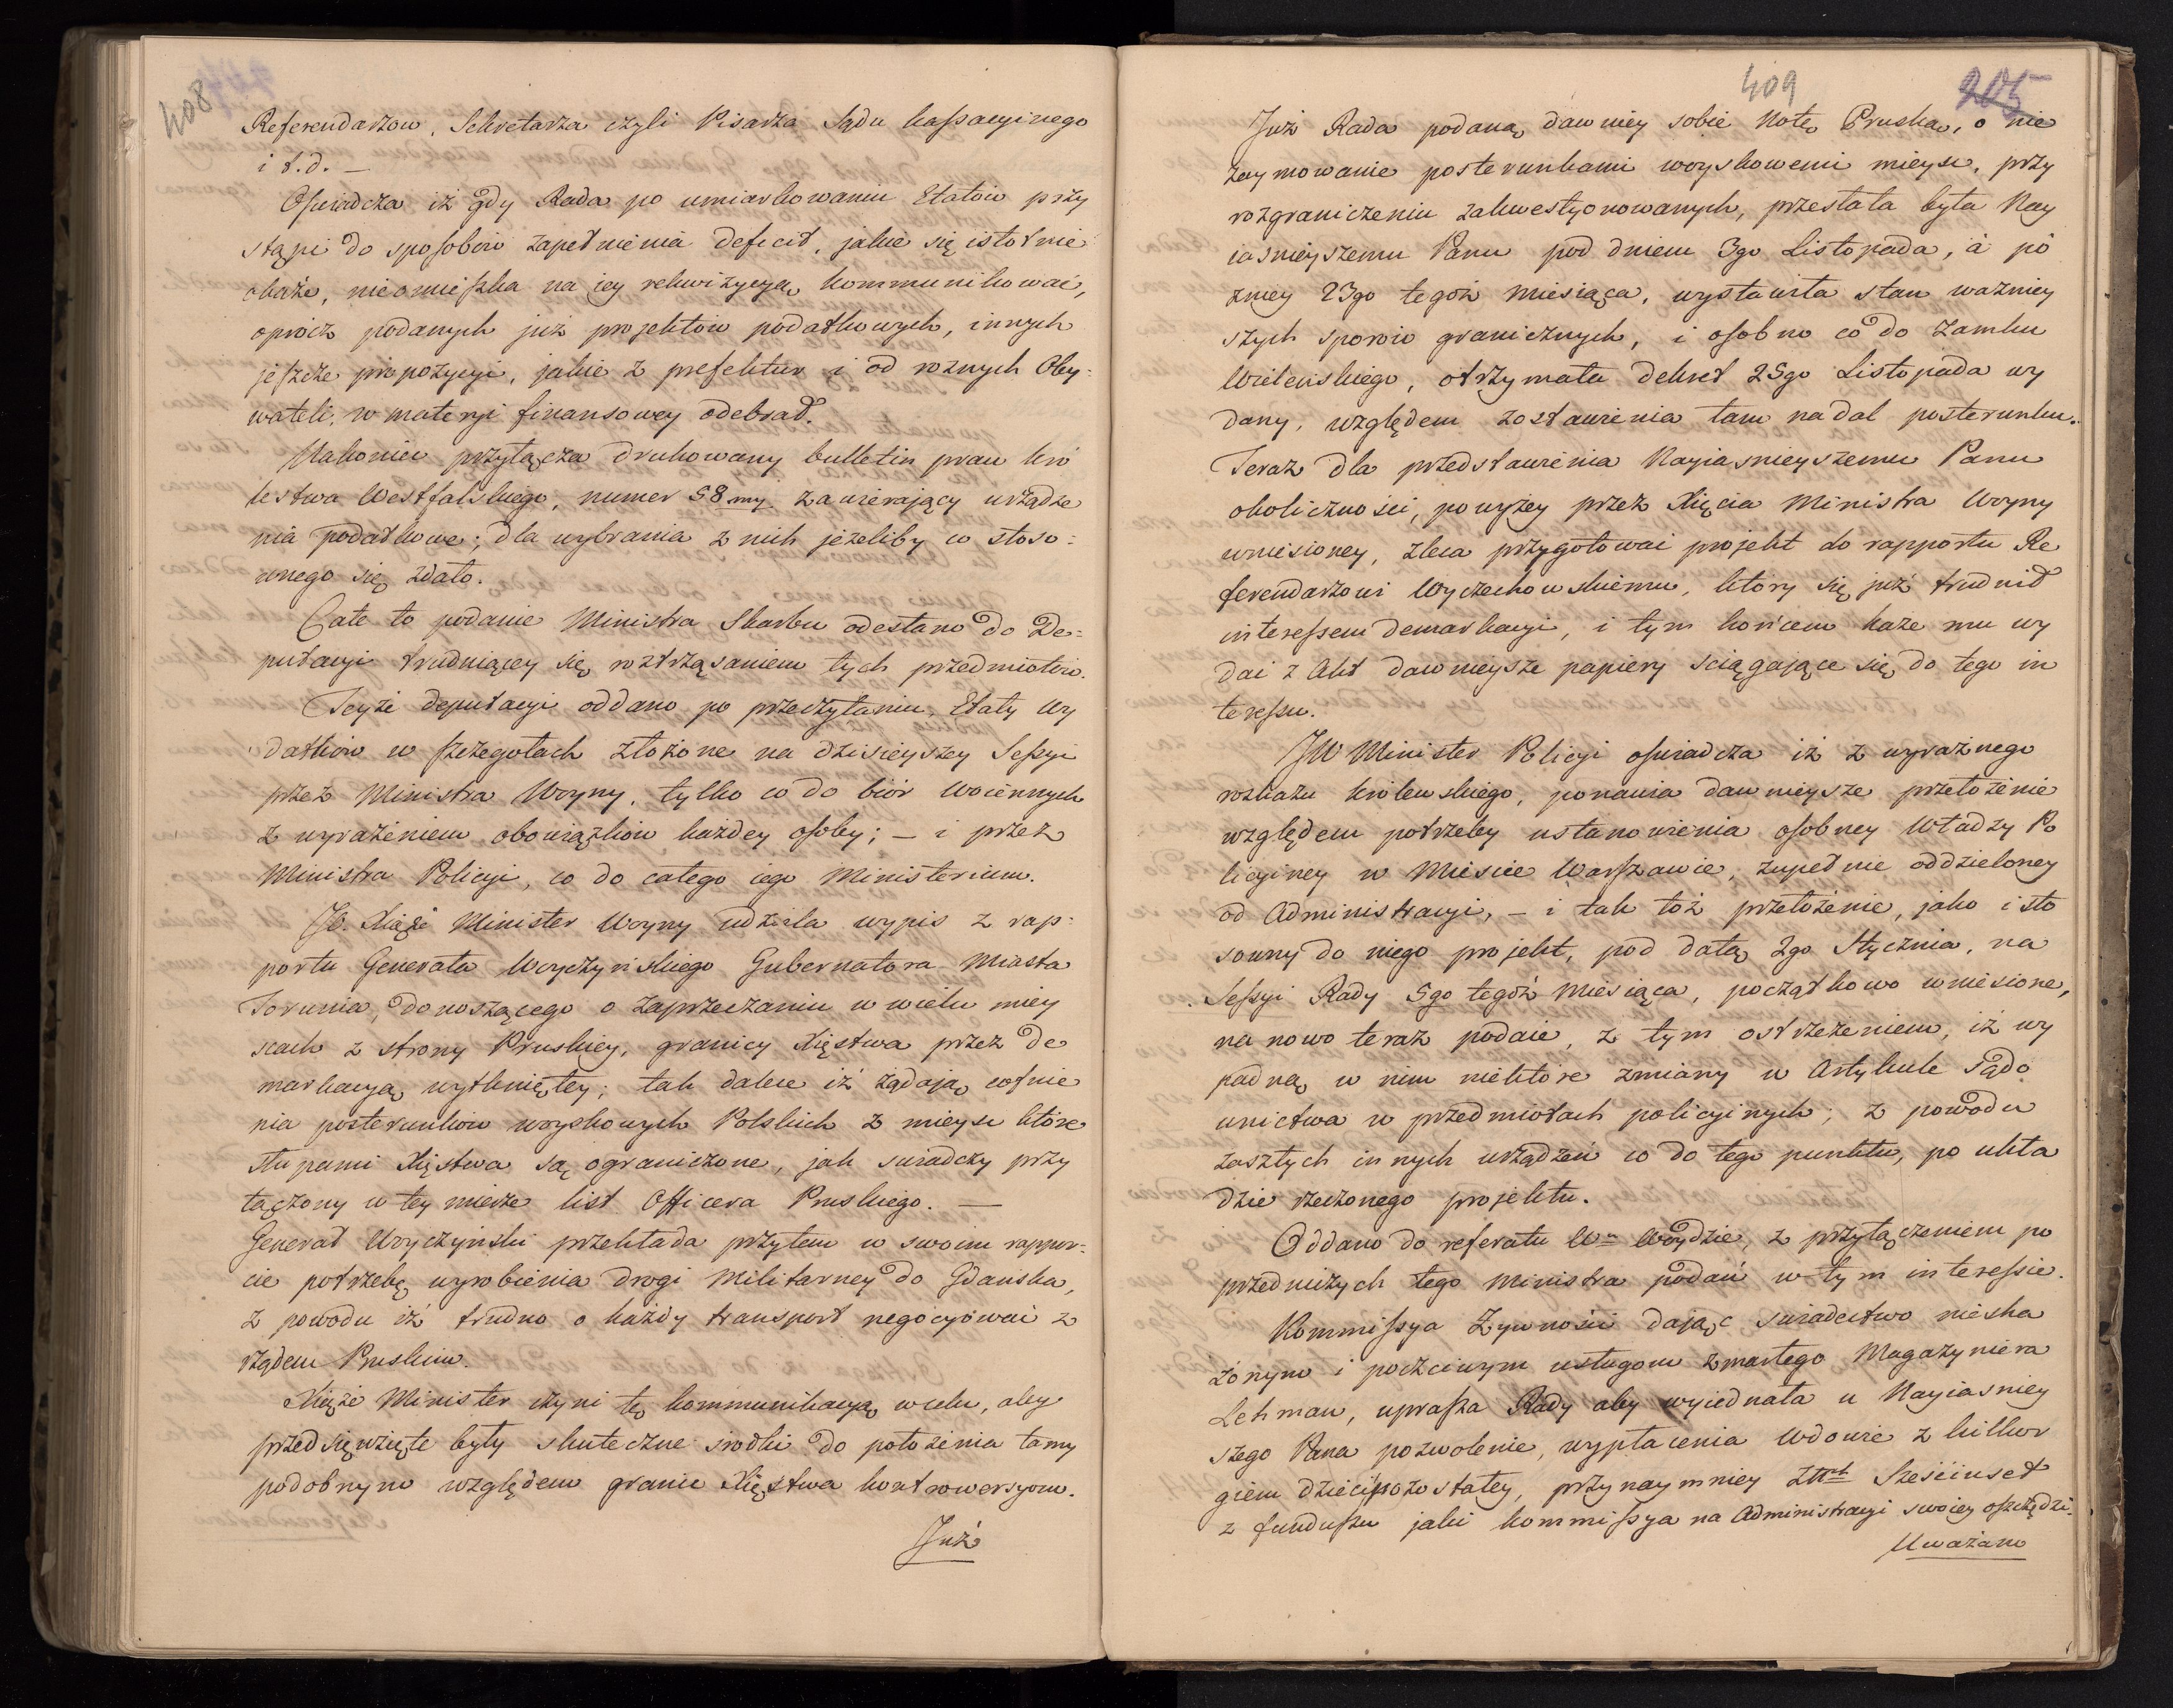 408
Referendarzow, Sekretarza czyli Pisarza Sądu kaſsacyinego
i t.d. —
Oſwiadcza iż gdy Rada po umiarkowaniu Etatow przy
stąpi do sposobow zapełnienia deficit, jakie się istotnie
okaże, nieomieſzka na jey rekwizycyą kommunikować,
oprócz podanych już projektow podatkowych, innych
jeſzcze propozycyi, jakie z prefektur i od roznych Oby-
wateli, w materyi finansowey odebrał.
Nakoniec przyłącza drukowany bulletin praw Kró
lestwa Westfalskiego, numer 58my zawierający urządze
nia podatkowe; dla wybrania z nich jeżeliby co stoso-
wnego się zdało.
Całe to podanie Ministra Skarbu odesłano do De-
putacyi trudniącey się roztrząsaniem tych przedmiotow.
Teyże deputacyi oddano po przeczytaniu, Etaty Wy
datkow w ſzczegołach złożone na dzisieyszey Seſsyi
przez Ministra Woyny, tylko co do biór Woiennych
z wyrażeniem obowiązkow każdey osoby; — i przez
Ministra Policyi, co do całego iego Ministerium.
JO. Xiąże Minister Woyny udziela wypis z rap-
portu Generała Woyczyńskiego Gubernatora Miasta
Torunia, donoszącego o zaprzeczaniu w wielu miey
scach z strony Pruskiey, granicy Xięstwa przez de
markacyą wytkniętey; tak dalece iż żądają cofnie
nia posterunkow woyskowych Polskich z mieysc które
słupami Xięstwa są ograniczone, jak swiadczy przy
łączony w tey mierze list Officera Pruskiego. —
Generał Woyczyński przekłada przytem w swoim rappor-
cie potrzebę wyrobienia drogi Militarney do Gdańska,
z powodu iż trudno o każdy transport negocyować z
rządem Pruskim.
Xiąże Minister czyni tę kommunikacyą w celu, aby
przedsięwzięte były skuteczne srodki do położenia tamy
podobnym względem granic Xięstwa kontrowersyom.
Już
409
205
Już Rada podaną dawniey sobie Notę Pruską, o nie
zaymowanie posterunkami woyskowemi mieysc, przy
rozgraniczeniu zakwestyonowanych, przesłała była Nay
iasnieyszemu Panu pod dniem 3go Listopada, a pó
zniey 23go tegoż miesiąca, wystawiła stan ważniey
szych sporow granicznych, i osobno co do Zamku
Wieleńskiego, otrzymała dekret 25go Listopada wy
dany, względem zostawienia tam nadal posterunku.
Teraz dla przedstawienia Nayiasnieyszemu Panu
okoliczności, powyżey przez Xięcia Ministra Woyny
wniesioney, zleca przygotować projekt do rapportu Re
ferendarzowi Wyczechowskiemu, ktory się już trudnił
intereſsem demarkacyi, i tym końcem każe mu wy
dać z Akt dawnieysze papiery sciągające się do tego in
tereſsu.
JW Minister Policyi oſwiadcza iż z wyraźnego
rozkazu Krolewskiego, ponawia dawnieysze przełożenie
względem potrzeby ustanowienia osobney Władzy Po
licyiney w Miescie Warſzawie, zupełnie oddzieloney
od Administracyi, — i tak toż przełożenie, jako i sto
sowny do niego projekt, pod datą 2go Stycznia, na
Seſsyi Rady 5go tegoż miesiąca, początkowo wniesione,
na nowo teraz podaie, z tym ostrzeżeniem, iż wy
padną w nim niektóre zmiany w Artykule Sądo
wnictwa w przedmiotach policyinych; z powodu
zaszłych innych urządzeń co do tego punktu, po ukła
dzie rzeczonego projektu.
Oddano do referatu Wu Woydzie, z przyłączeniem po
przedniżych tego Ministra podań w tym intereſsie.
Kommiſsya Zywności dając swiadectwo nieska
żonym i poczciwym usługom zmarłego Magazyniera
Lehman, upraſza Rady aby wyiednała u Nayiasniey
szego Pana pozwolenie, wypłacenia Wdowie z kilkor
giem dzieci pozostałey, przynaymniey złłch Sześćiuset
z funduſzu jaki kommiſsya na Administracyi swoiey oſzczędzi.
Uważano